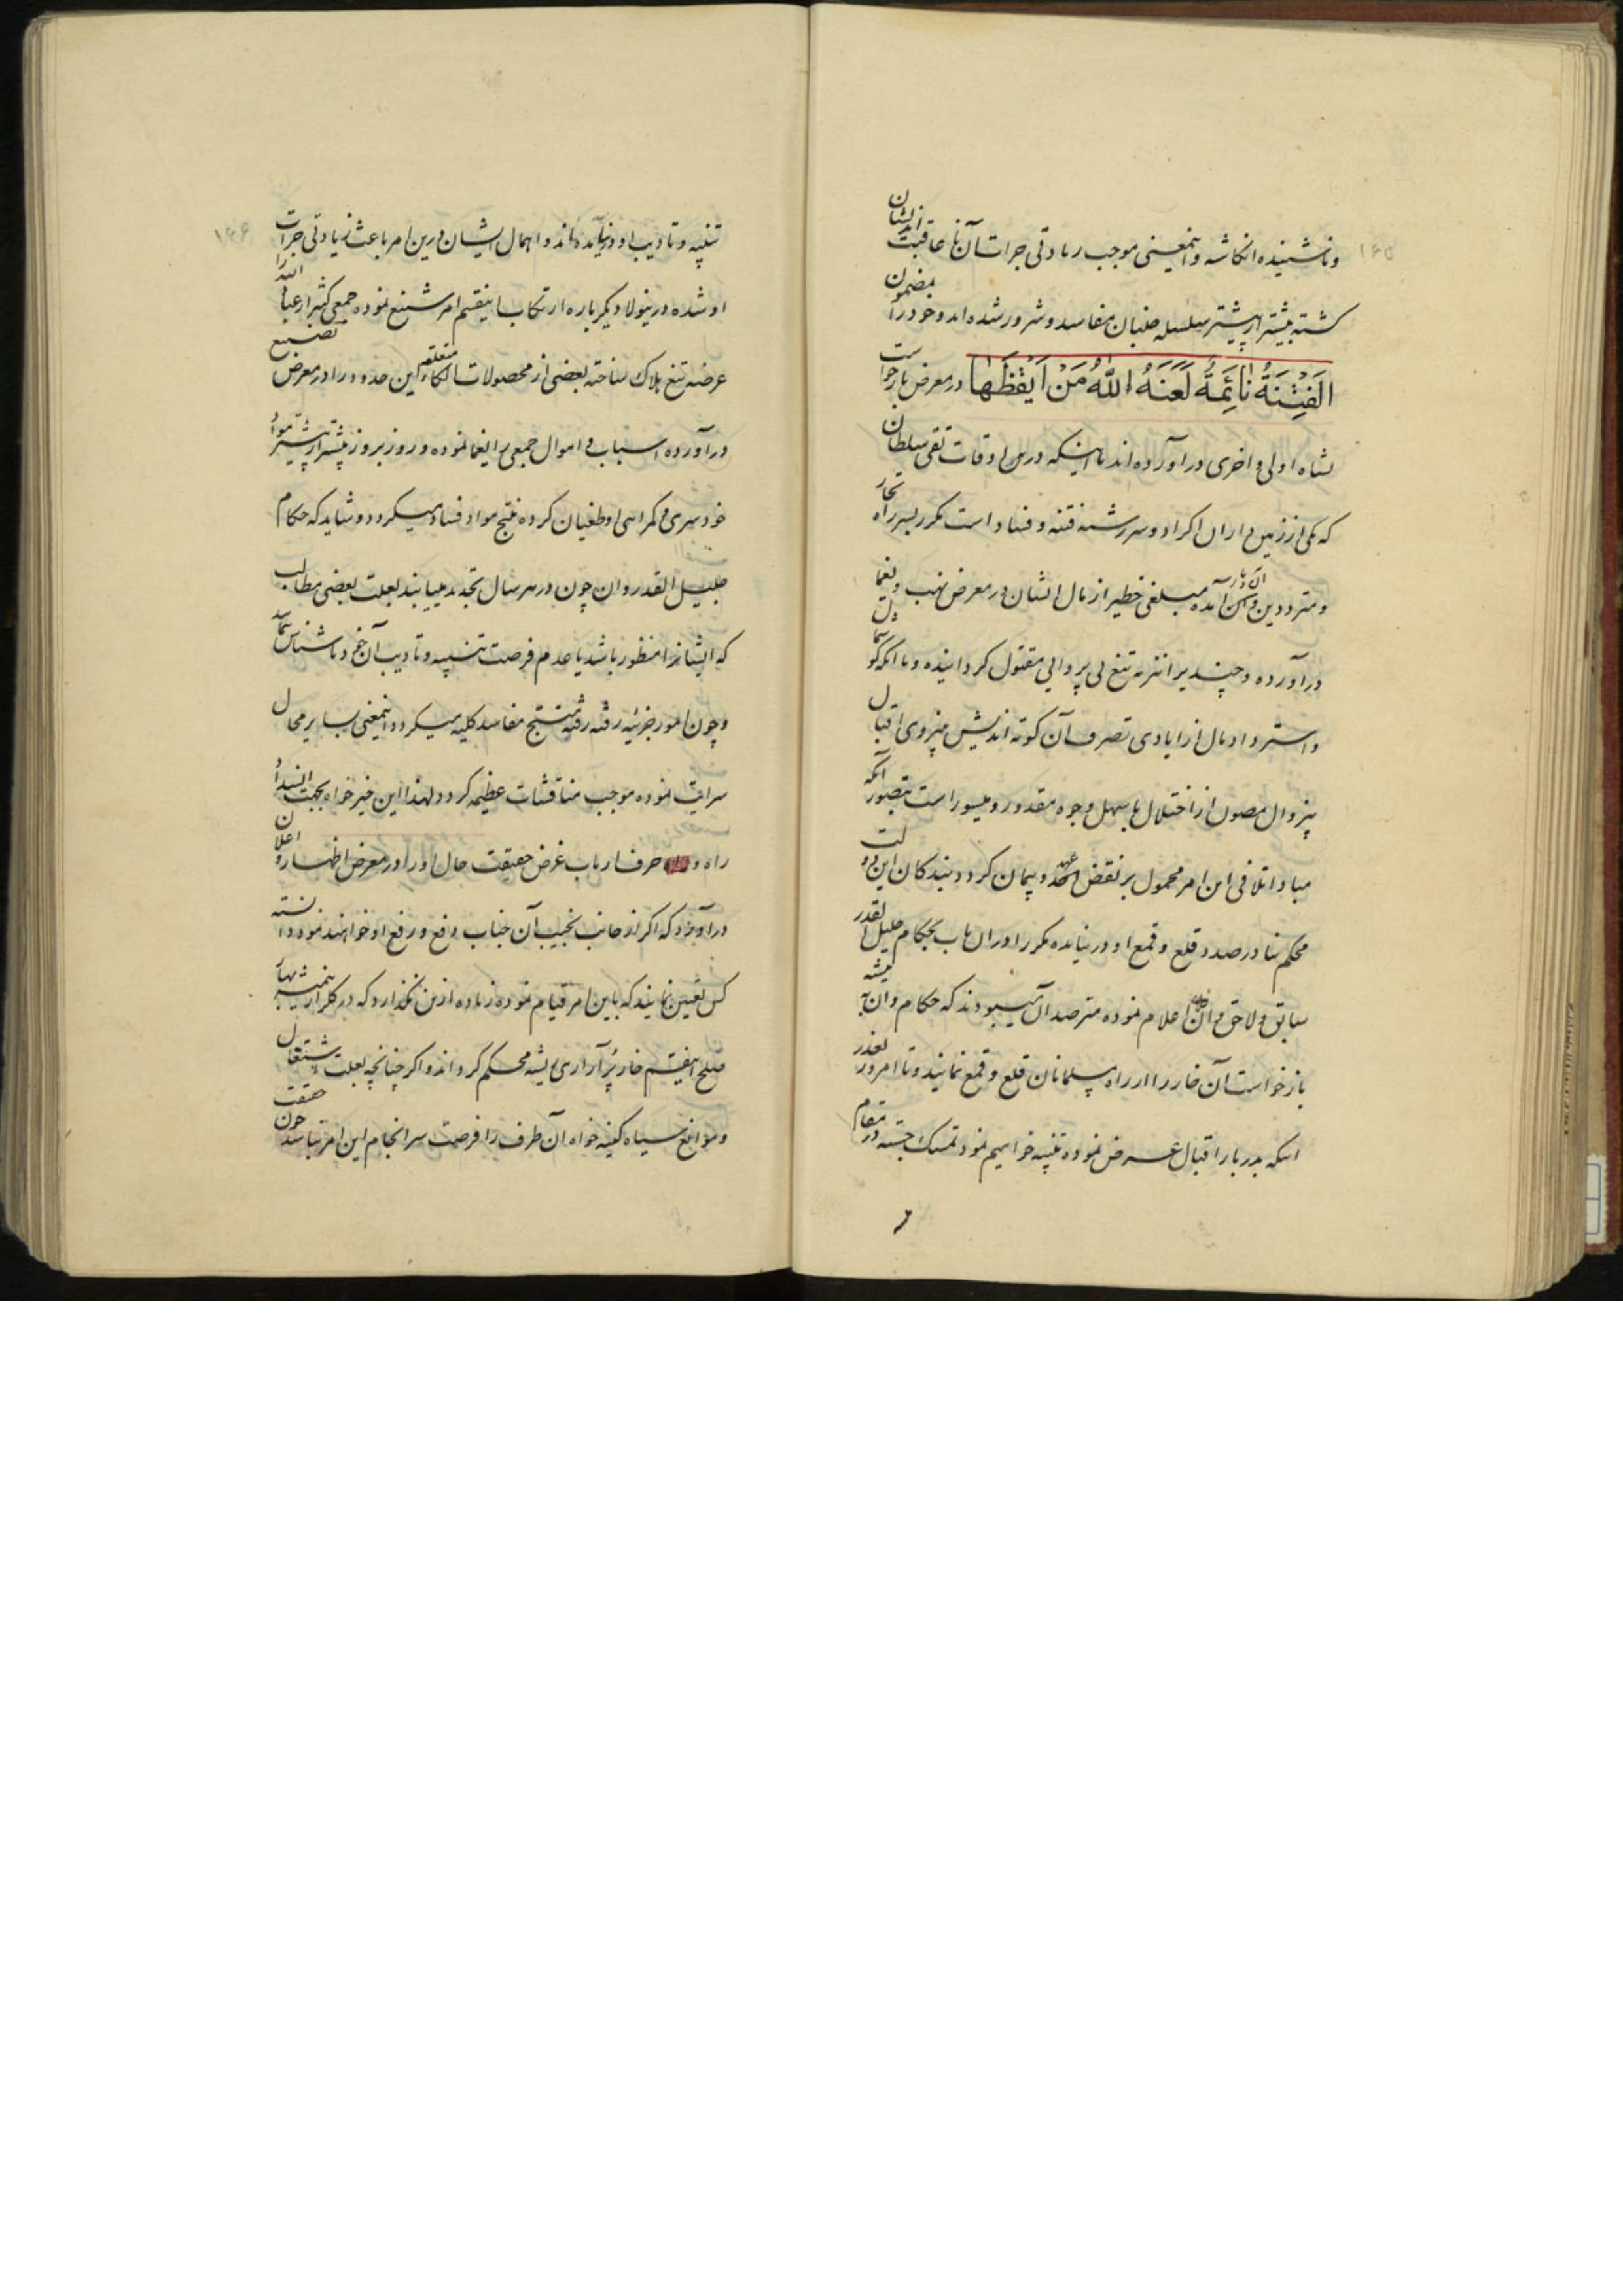 ۱۴۵
و ناشنیده انکاشته و اینمعنی موجب زیادتی جرات آن نا عاقبت اندیشان
کشته بیشتر از پیشتر سلسله جنبان مفاسد و شرور شده اند و خود را بمضمون
اَلفِتْنَةُ نائِمَةٌ لَعَنَهُ اللّهُ مَنْ اَیْقَظَها در معرض بازخواست
نشاه اولی و اخری در آورده اند تا اینکه درین اوقات تقی سلطان
که یکی از زمین داران اکراد و سر رشته فتنه و فساد است مکرر بسر راه تجار
و مترددین آن دیار آمده مبلغی خطیر از مال ایشان در معرض نهب و یغما
در آورده و چند یرا نیز به تیغ بی پروایی مقتول کردانیده و با آنکه کوشمال
و استرداد مال از ایادی تصرف آن کوته اندیش بنیروی اقبال
بیزوال مصون از اختلال باسهل وجوه مقدور و میسور است بتصور آنکه
مبادا تلافی این امر محمول بر نقض عهد و پیمان کردد بندکان این دولت
محکم بنا در صدد قلع و قمع او در نیامده مکرر او را از آن باب بحکام جلیل القدر
سابق و لاحق وان اعلام نموده مترصد آن میبودند که حکام وان به تیشه
بازخواست آن خار را از راه مسلمانان قلع و قمع نمایند و تا امروز بعذر
اینکه بدربار اقبال عرض نموده تنبیه خواهیم نمود تمسک جسته در مقام
۱۴۶
تنبیه و تادیب او در نیامده اند و اهمال ایشان درین امر باعث زیادتی جرات
او شده درینولا دیکر باره ارتکاب اینقسم امر شنیع نموده جمعی کثیر از عباد الله را
عرضه تیغ هلاک ساخته بعضی از محصولات الکاء متعلقه این حدود را در معرض تضییع
در آورده اسباب و اموال جمعی را یغما نموده و روز بروز بیشتر از پیشتر مواد
خودسری و کمراهی او طغیان کرده منتج مواد فساد میکردد و شاید که حکام
جلیل القدر وان چون در هر سال تجدید مییابند بعلت بعضی مطالب
که ایشانرا منظور باشد یا عدم فرصت تنبیه و تادیب آن خودناشناس نمایند
و چون امور جزئیه رفته رفته منتج مفاسد کلیه میکردد و اینمعنی بسایر محال
سرایت نموده موجب مناقشات عظیمه کردد لهذا این خیرخواه بجهت انسداد
راه و حرف ارباب غرض حقیقت حال او را در معرض اظهار و اعلان
در آورد که اکر از جانب نجیب آن جناب دافع و رفع او خواهند نمود دانسته
کس تعیین نمایند که باین امر قیام نموده زیاده ازین نکذارد که در کلزار همیشه بهار
صلح اینقسم خار پر آزاری ریشه محکم کرداند و اکر چنانچه بعلت اشتغال
و موانع سپاه کینه خواه آن طرف را فرصت سرانجام این امر نباشد چون حقیقت